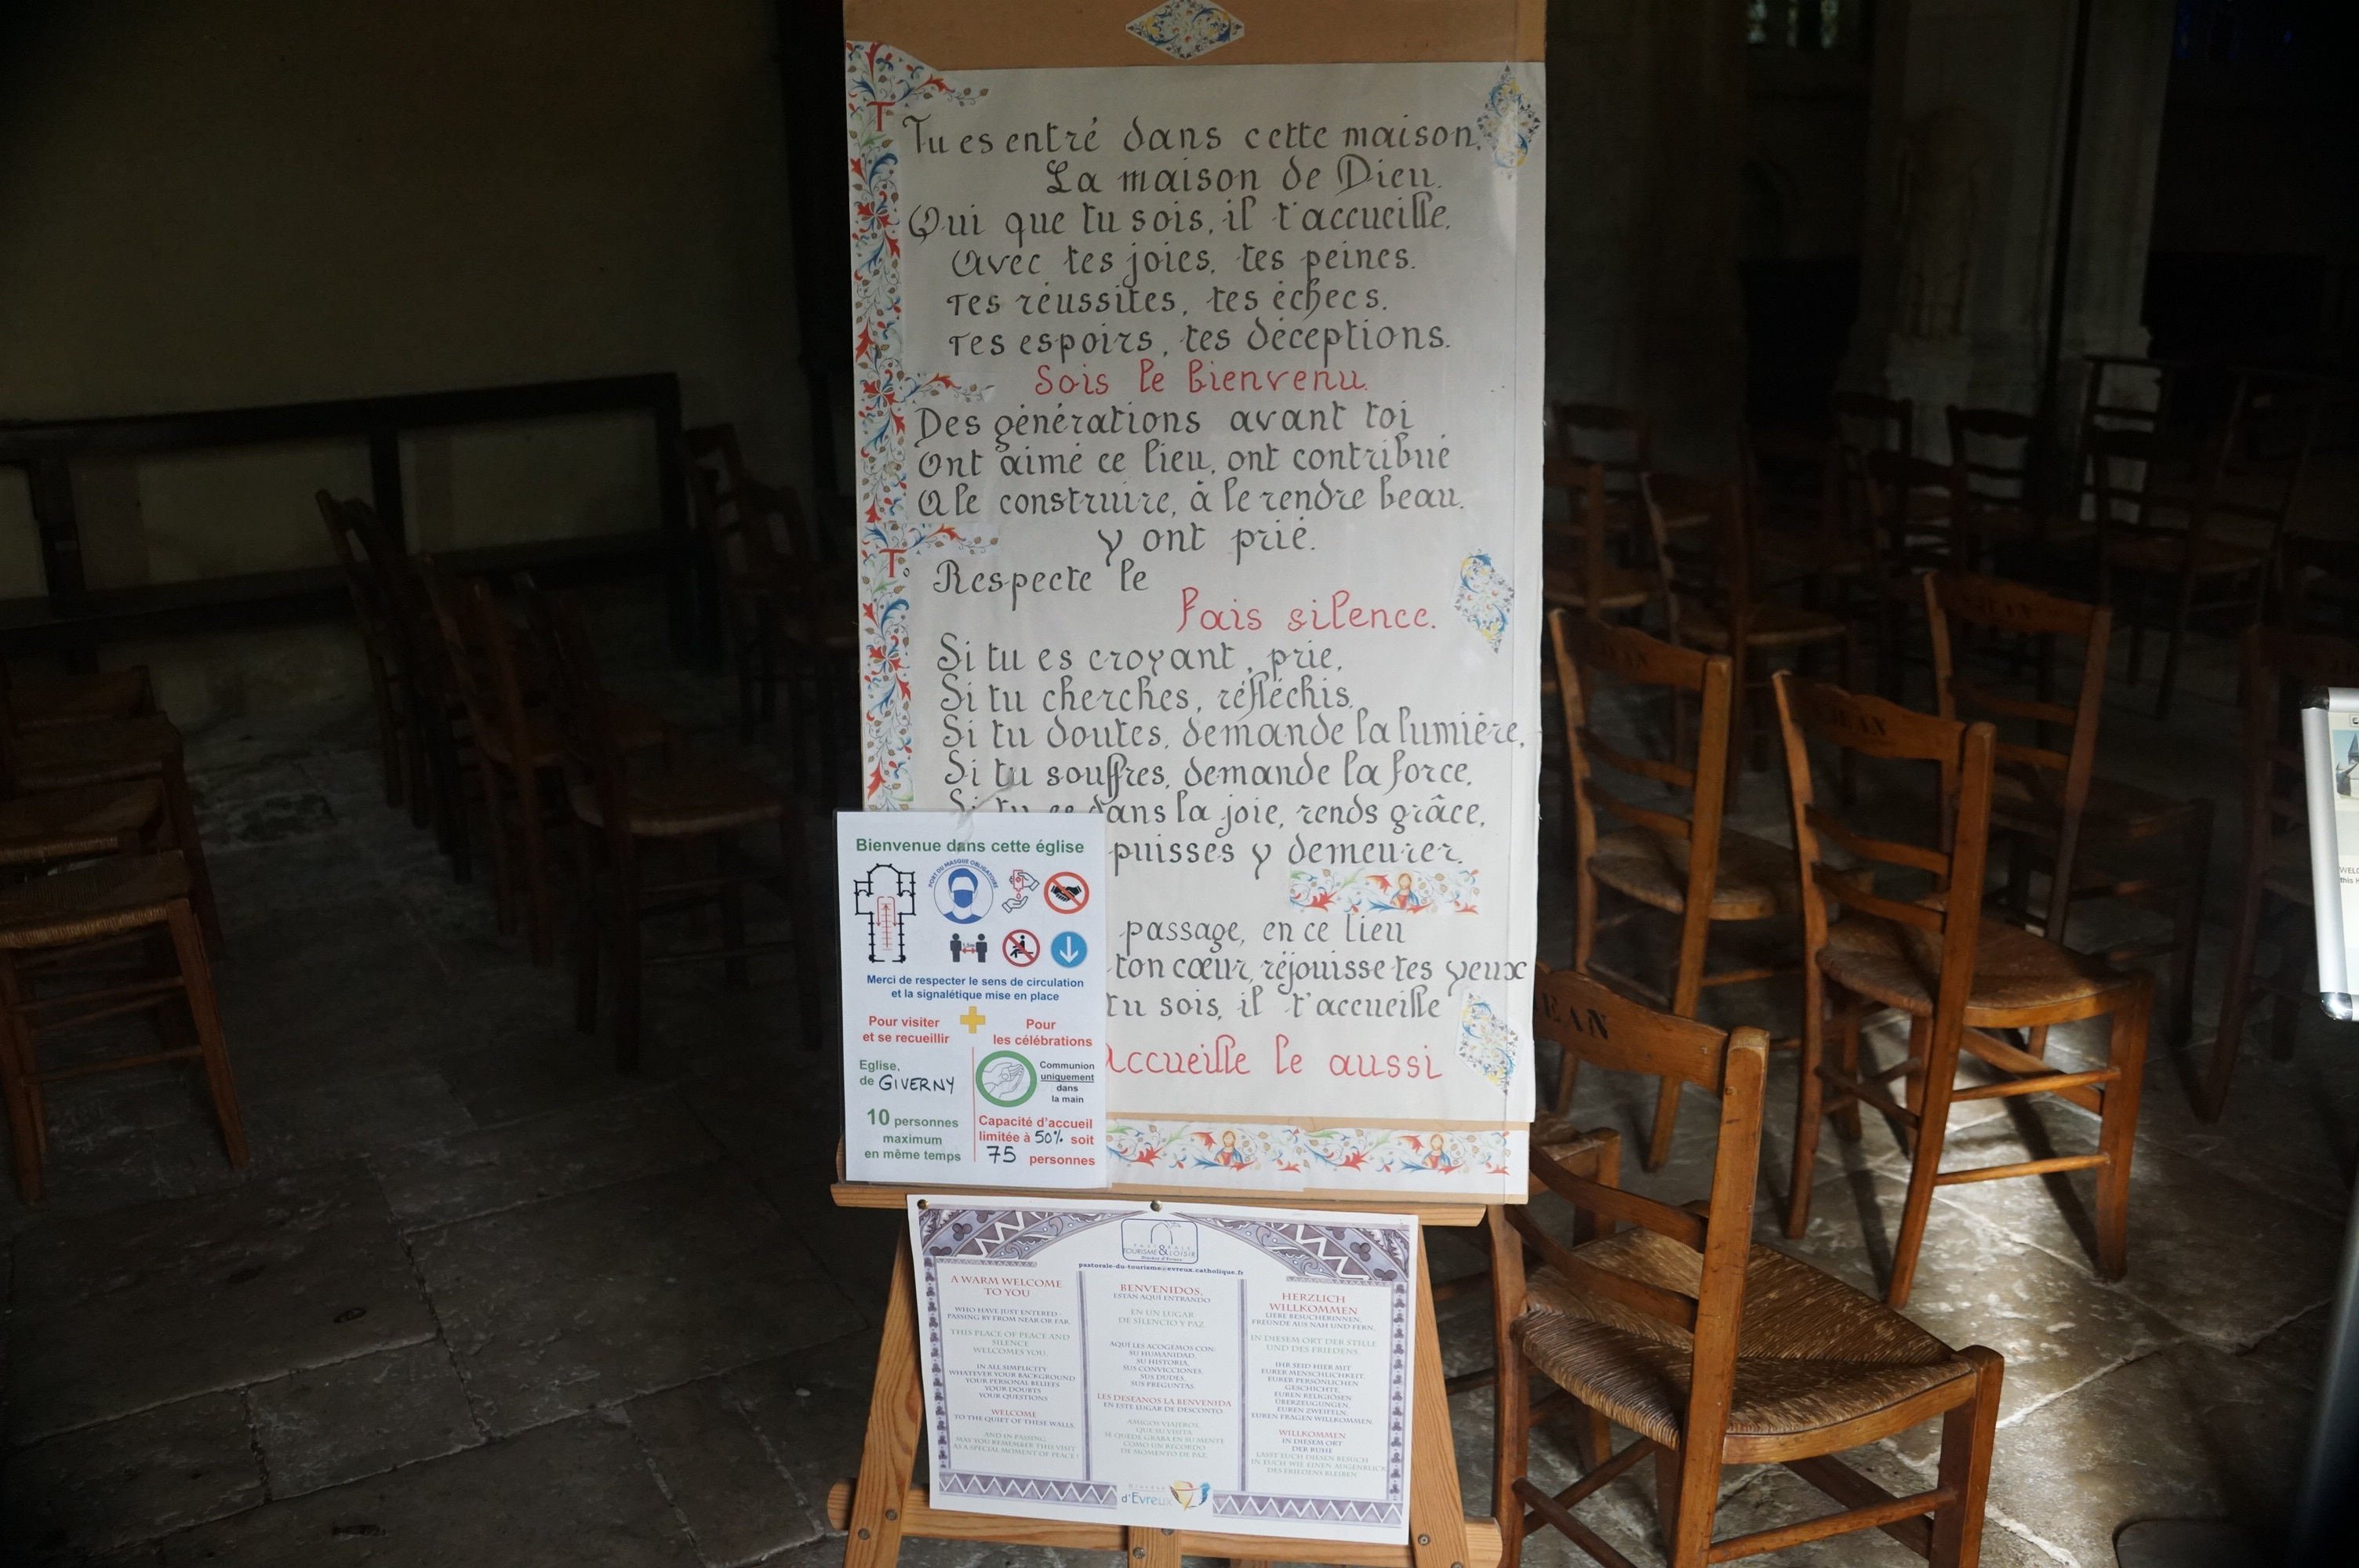 Tu es entré dans cette maison,
La maison de Dieu.
Qui que tu sois, il t'accueille.
Avec tes joies, tes peines.
Tes réussites, tes échecs.
Tes espoirs, tes déceptions.
Sois le bienvenu.
Des générations avant toi
Ont aimé ce lieu, ont contribué
A le construire, à le rendre beau.
y ont prié.
Respecte le
Fais silence.
Si tu es croyant, prie,
Si tu cherches, réfléchis.
Si tu doutes, demande la lumière,
Si tu souffres, demande la force.
Si tu es dans la joie, rends grâce,
puisses y demeurer.
passage, en ce lieu
ton cœur, réjouisse tes yeux
tu sois, il t'accueille
Accueille le aussi
Bienvenue dans cette église
PORT DU MASQUE OBLIGATOIRE
Merci de respecter le sens de circulation
et la signalétique mise en place
Pour visiter
et se recueillir
Eglise,
de GIVERNY
10 personnes
maximum
en même temps
Pour
les célébrations
Communion
uniquement
dans
la main
Capacité d'accueil
limitée à 50% soit
75 personnes
PASTORALE
TOURISME & LOISIR
pastorale-du-tourisme@evreux.catholique.fr
A WARM WELCOME
TO YOU
WHO HAVE JUST ENTERED -
PASSING BY FROM NEAR OR FAR.
THIS PLACE OF PEACE AND
SILENCE
WELCOMES YOU,
IN ALL SIMPLICITY
WHATEVER YOUR BACKGROUND
YOUR PERSONAL BELIEFS
YOUR DOUBTS
YOUR QUESTIONS
WELCOME
TO THE QUIET OF THESE WALLS.
AND IN PASSING
MAY YOU REMEMBER THIS VISIT
AS A SPECIAL MOMENT OF PEACE !
BENVENIDOS,
ESTÁN AQUÍ ENTRANDO
EN UN LUGAR
DE SILENCIO Y PAZ.
AQUÍ LES ACOGEMOS CON:
SU HUMANIDAD,
SU HISTORIA,
SUS CONVICCIONES,
SUS DUDES,
SUS PREGUNTAS.
LES DESEANOS LA BENVENIDA
EN ESTE LUGAR DE DESCONTO.
AMIGOS VIAJEROS,
QUE SU VISITA
SE QUEDE GRABA EN SU MENTE
COMO UN RECORDO
DE MOMENTO DE PAZ.
HERZLICH
WILLKOMMEN
LIEBE BESUCHERINNEN,
FREUNDE AUS NAH UND FERN,
IN DIESEM ORT DER STILLE
UND DES FRIEDENS.
IHR SEID HIER MIT
EURER MENSCHLICHKEIT,
EURER PERSÖNLICHEN
GESCHICHTE,
EUREN RELIGIÖSEN
ÜBERZEUGUNGEN,
EUREN ZWEIFELN,
EUREN FRAGEN WILLKOMMEN.
WILLKOMMEN
IN DIESEM ORT
DER RUHE
LASST EUCH DIESEN BESUCH
IN EUCH WIE EINEN AUGENBLICK
DES FRIEDENS BLEIBEN
d'Evreux
JEAN
EAN